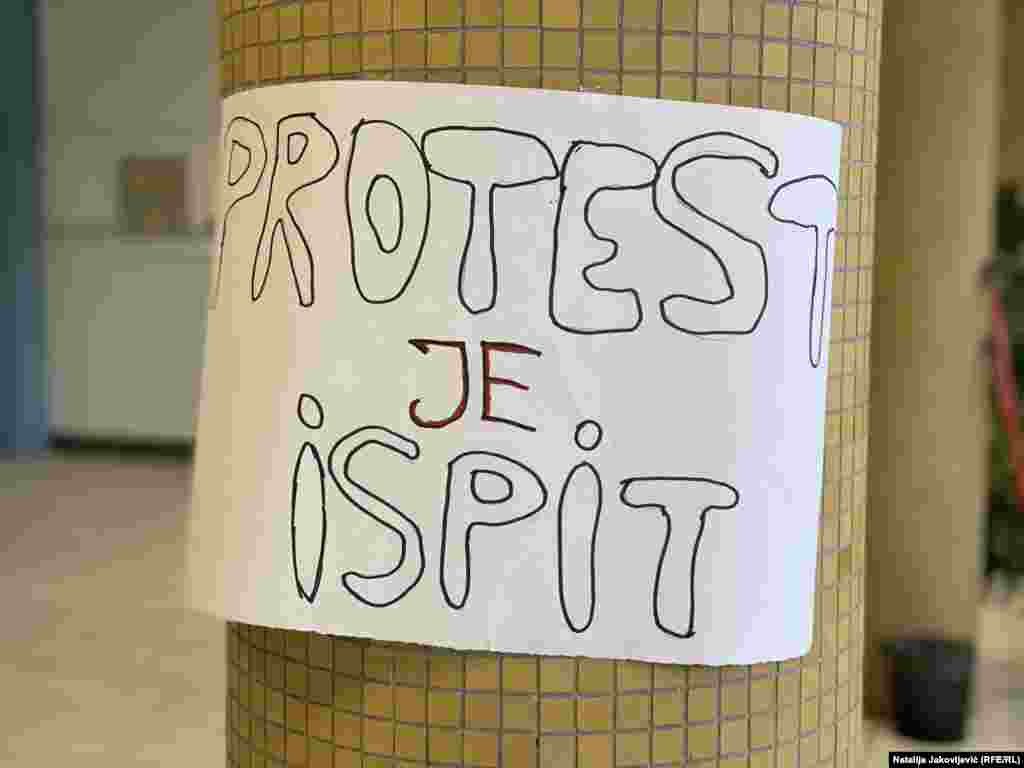 PROTEST
JE
iSPiT
Natalija Jakovljević (RFE/RL)